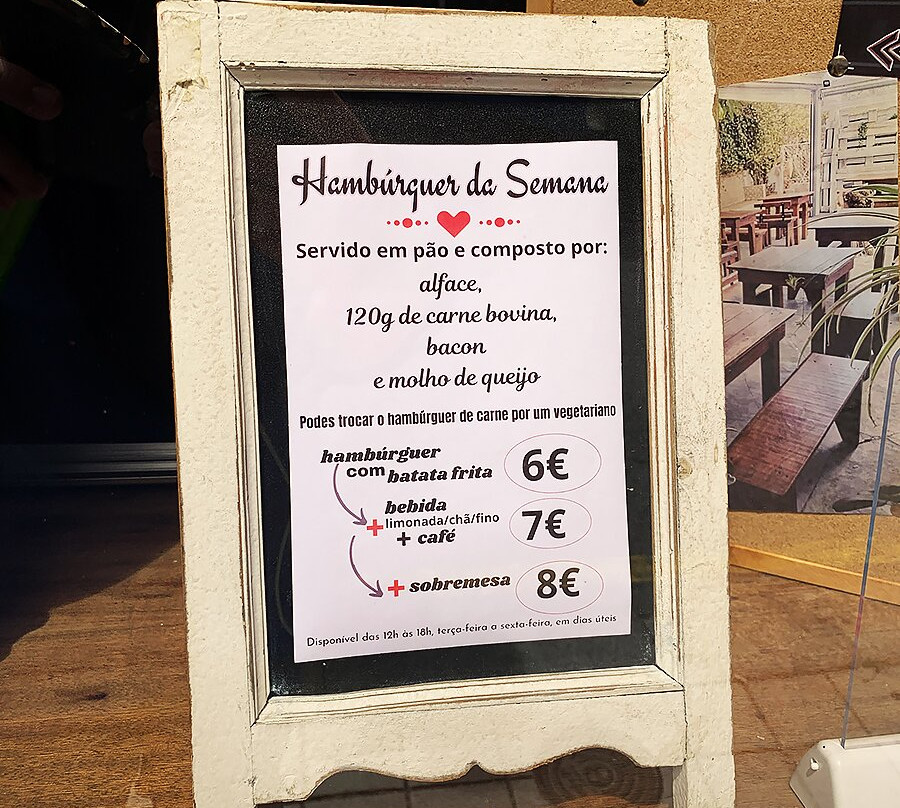 Hambúrguer da Semana
Servido em pão e composto por:
alface,
120g de carne bovina,
bacon
e molho de queijo
Podes trocar o hambúrguer de carne por um vegetariano
hambúrguer
com batata frita 6€
bebida
+ limonada/chã/fino 7€
+ café
+ sobremesa 8€
Disponível das 12h às 18h, terça-feira a sexta-feira, em dias úteis